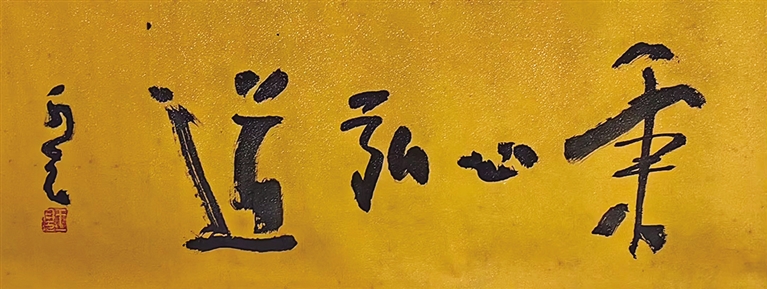 秉心弘道